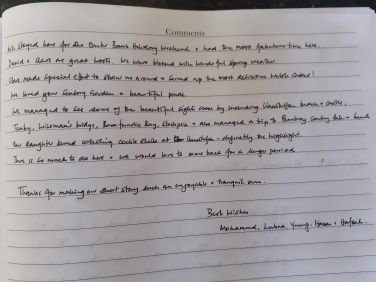 Comments
We stayed here for the Bank Holiday weekend + had the most fabulous time here.
David + Clare are great hosts. We were blessed with wonderful spring weather.
Clare made special effort to show me around + served up the most delicious Welsh Cakes!
We loved your garden + beautiful pond.
We managed to see some of the beautiful sights near by including Llansteffan beach + castle,
Tenby, Wiseman's bridge, Barafundle Bay, Stackpole + also managed a trip to Pembrey Country Park + beach
Our daughter loved collecting cockle shells at Llansteffan - definitely the highlight.
There is so much to do here + we would love to come back for a longer period
Thanks for making our short stay such an enjoyable + tranquil one.
Best Wishes
Mohammad, Lubna,